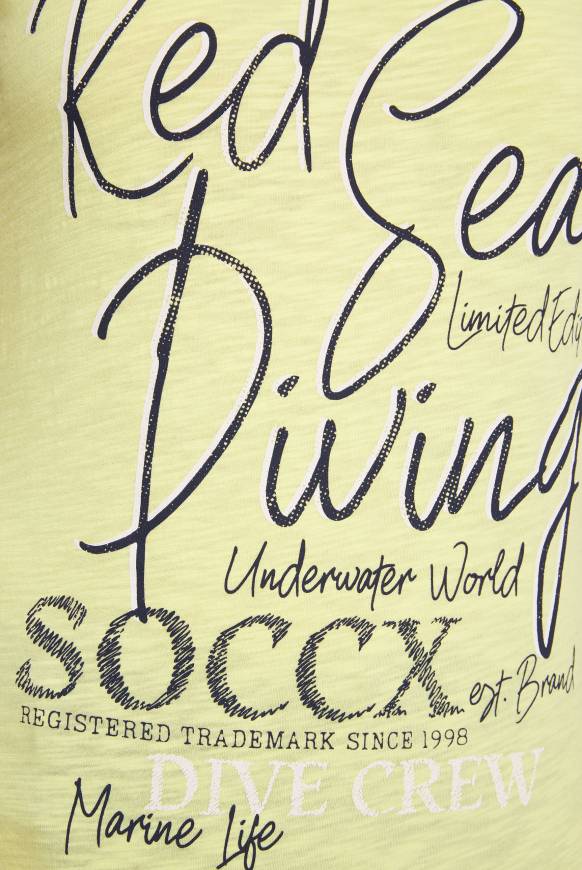 Red Sea
Limited Edi
Diving
Underwater World
SOCCX
est. Brand
REGISTERED TRADEMARK SINCE 1998
DIVE CREW
Marine Life